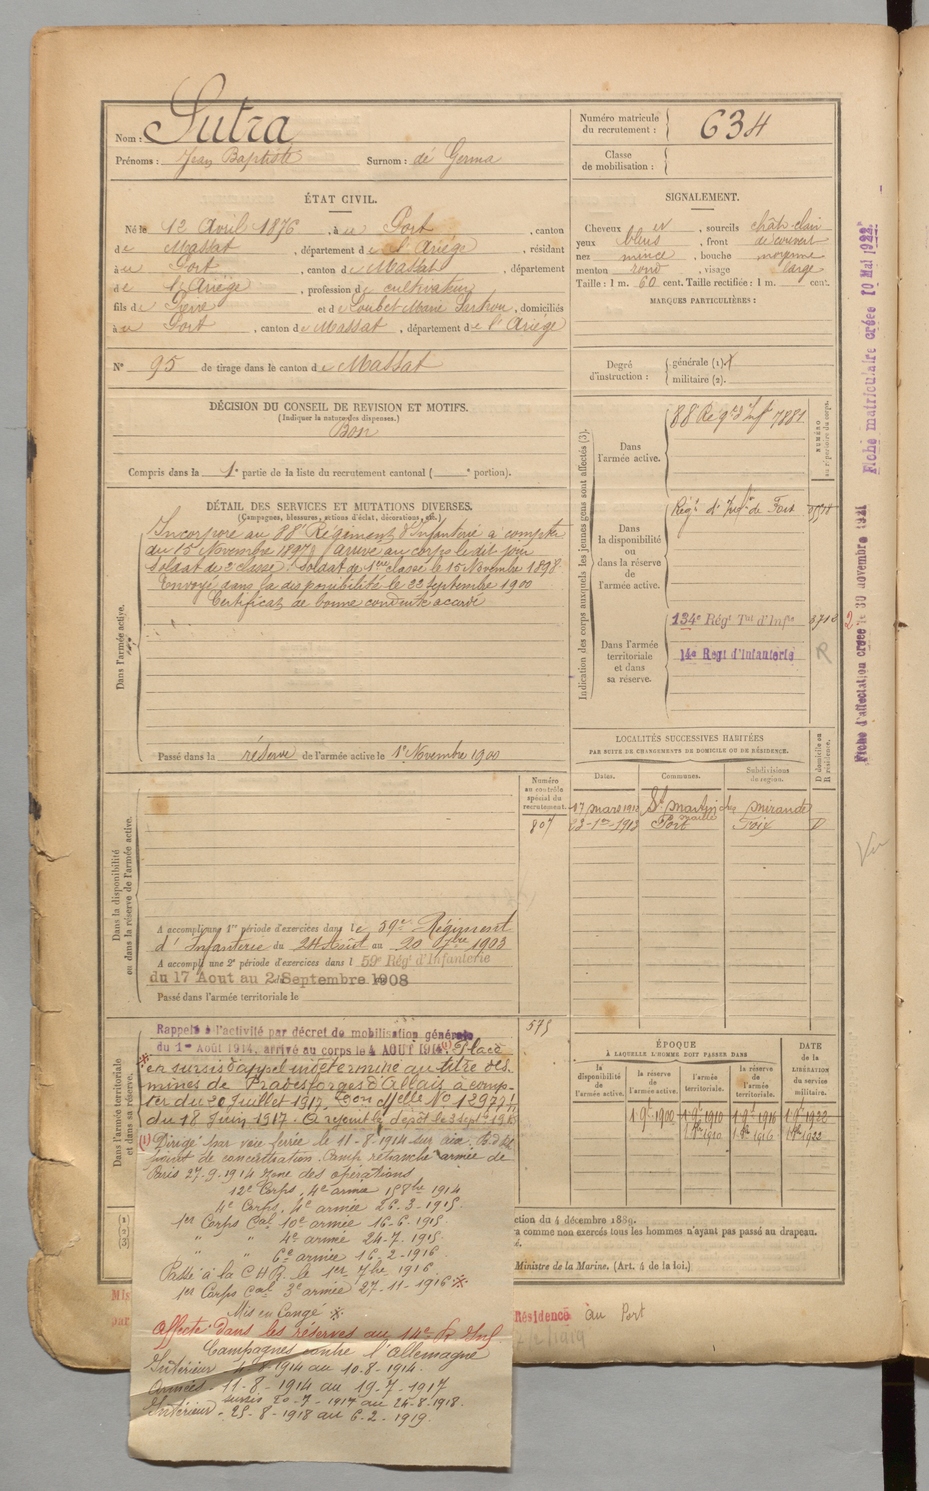 Nom : Sutra
Prénoms : Jean Baptiste Surnom : de Germa
Numéro matricule du recrutement : 634
Classe de mobilisation :
ÉTAT CIVIL.
Né le 12 Avril 1876, à u Port, canton
de Massat, département de l'Ariège, résidant
à u Port, canton de Massat, département
de l'Ariège, profession de cultivateur
fils de Pierre et de Loubet Marie, domiciliés
à u Port, canton de Massat, département de l'Ariège
N° 95 de tirage dans le canton de Massat
SIGNALEMENT.
Cheveux et, sourcils chât-clair
yeux bleus, front découvert
nez mince, bouche moyenne
menton rond, visage large
Taille : 1 m. 60 cent. Taille rectifiée : 1 m. cent.
MARQUES PARTICULIÈRES :
Degré d'instruction : générale (1).
militaire (2).
DÉCISION DU CONSEIL DE REVISION ET MOTIFS.
(Indiquer la nature des dispenses.)
Bon
Compris dans la 1e partie de la liste du recrutement cantonal ( e portion).
DÉTAIL DES SERVICES ET MUTATIONS DIVERSES.
(Campagnes, blessures, actions d'éclat, décorations, etc.)
Dans l'armée active.
Incorporé au 88e Régiment d'Infanterie à compter
du 15 Novembre 1897, arrivé au corps le dit jour
Soldat de 2e classe. Soldat de 1ère classe le 15 Novembre 1898
Envoyé dans la disponibilité le 22 Septembre 1900
Certificat de bonne conduite accordé
Passé dans la réserve de l'armée active le 1er Novembre 1900
Indication des corps auxquels les jeunes gens sont affectés (3).
Dans l'armée active.
88 Régt d'Infie 7881
NUMÉRO au répertoire du corps.
Dans la disponibilité ou dans la réserve de l'armée active.
Régt d'Infie de Foix
Dans l'armée territoriale et dans sa réserve.
134e Régt Tal d'Infie
14e Regt d'Infanterie
R
LOCALITÉS SUCCESSIVES HABITÉES
PAR SUITE DE CHANGEMENTS DE DOMICILE OU DE RÉSIDENCE.
D domicile ou R résidence.
Dates. Communes. Subdivisions de région.
17 mars 1912 St Martin Mirande
23-1er-1913 Port Foix D
Dans la disponibilité ou dans la réserve de l'armée active.
Numéro au contrôle spécial du recrutement.
807
A accompli une 1re période d'exercices dans le 59e Régiment
d'Infanterie du 24 Août au 20 7bre 1903
A accompli une 2e période d'exercices dans l 59e Régt d'Infanterie
du 17 Aout au 2 Septembre 1908
Passé dans l'armée territoriale le
Dans l'armée territoriale et dans sa réserve.
575
Rappelé à l'activité par décret de mobilisation générale
du 1er Août 1914, arrivé au corps le 4 AOUT 1914 (1). Placé
en sursis d'appel indéterminé au titre des
mines de Pradesforges d'Allais à comp-
ter du 20 Juillet 1917. Don Mlle No 12972
du 18 Juin 1917. A rejoint le dépôt le 3 Sept 1918
(1) Dirigé par voie ferrée le 11-8-1914 sur
point de concentration. Camp retranché armée de
Paris 27-9-1914 zone des opérations
12e Corps, 4e armée 1914
4e Corps, 4e armée 26-3-1915.
1er Corps Cal 10e armée 16-6-1915
" " 4e armée 24-7-1915
" " 6e armée 16-2-1916.
Passé à la C H R le 1er 7bre 1916
1er Corps Cal 3e armée 27-11-1916
Mis en Congé
Affecté dans les réserves au 14e R. Inf.
Campagnes contre l'Allemagne
Intérieur 4-8-1914 au 10-8-1914.
Armées - 11-8-1914 au 19-7-1917
sursis 20-7-1917 au 24-8-1918.
Intérieur - 25-8-1918 au 6-2-1919.
ÉPOQUE À LAQUELLE L'HOMME DOIT PASSER DANS
la disponibilité de l'armée active. la réserve de l'armée active. l'armée territoriale. la réserve de l'armée territoriale.
DATE de la LIBÉRATION du service militaire.
1 9e 1900 1 9e 1910 1 9e 1916 1 9e 1922
ction du 4 décembre 1889.
a comme non exercés tous les hommes n'ayant pas passé au drapeau.
Ministre de la Marine. (Art. 4 de la loi.)
Résidence au Port
Fiche d'affectation créée le 30 novembre 1921
Fiche matriculaire créée 10 Mai 1922
Vu